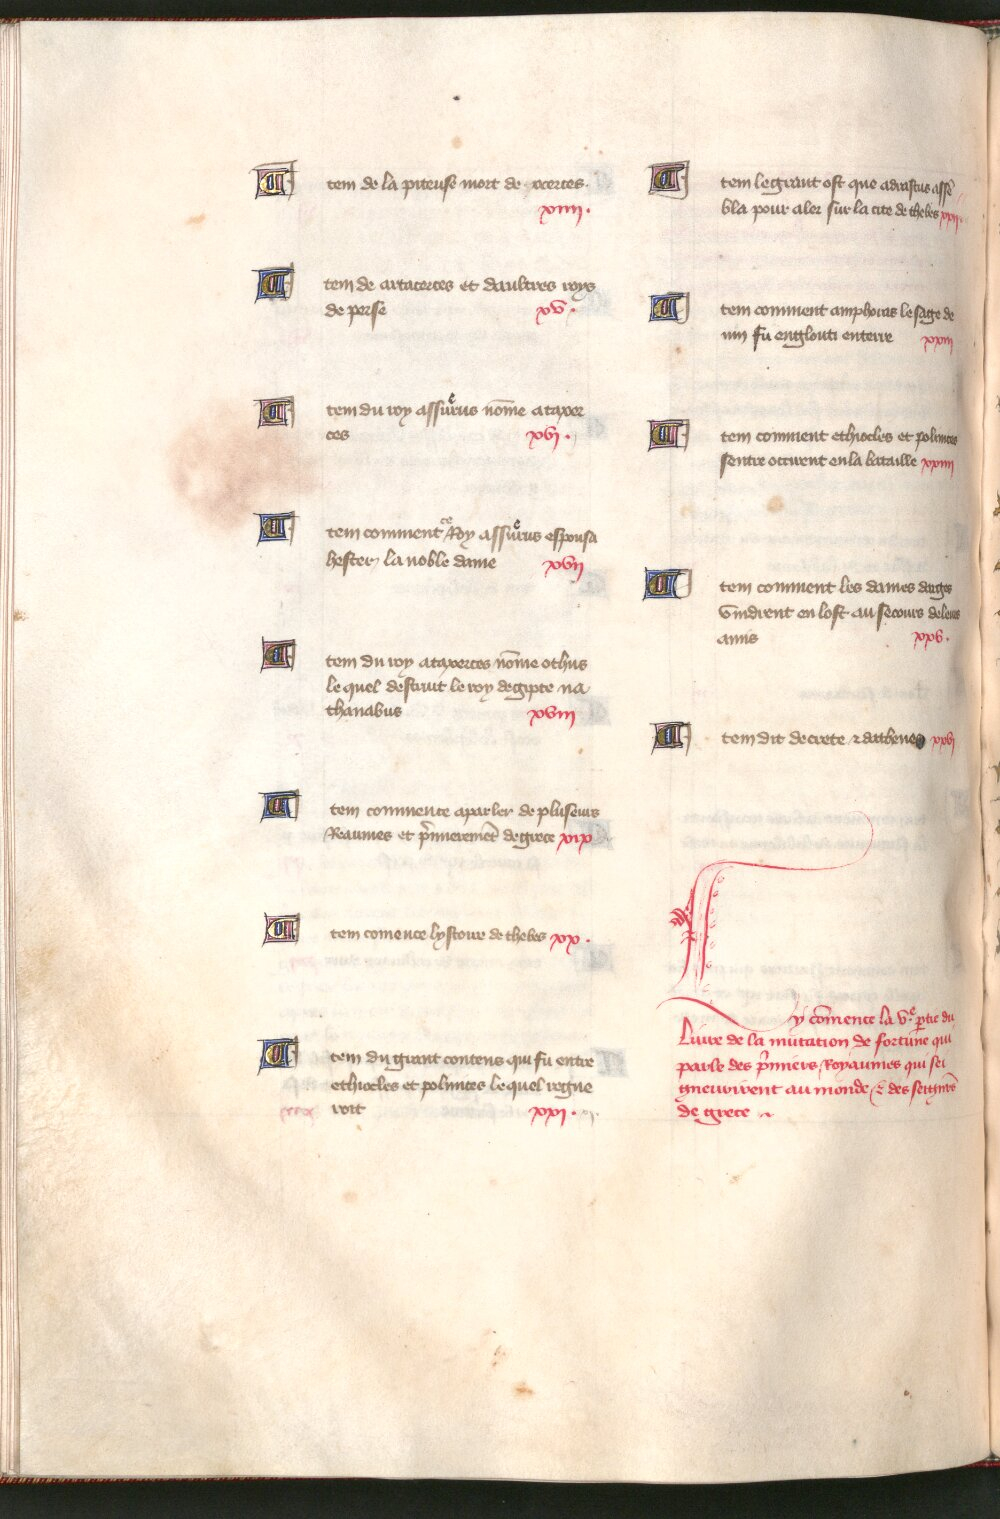 Item de la piteuse mort de xerces.
xiiii.
Item de artacerces et daultres roys
de perse xv.
Item du roy assuerus nõme ataxer
ces xvi.
Item comment ce Roy assuerus espousa
hester la noble dame xvii
Item du roy ataxerces nõme othus
le quel destruit le roy degipte na
thanabus xviii
Item commence a parler de pluseurs
Reaumes et p̃mieremẽt de grece xix
Item comence lystoire de thebes xx.
Item du grant contens qui fu entre
ethiocles et polinices le quel regne
roit xxi.
Item le grant ost que adrastus assẽ
bla pour aler sur la cite de thebes xxii
Item comment amphoras le sage de
uin fu englouti en terre xxiii
Item comment ethiocles et polinices
sentre occirent en la bataille xxiiii
Item comment les dames darges
vindrent en lost au secours de leurs
amis xxv.
Item dit de crete & dathenes xxvi
Cy cõmence la ve ꝑtie du
Liure de la mutacion de fortune qui
parle des p̃miers Royaumes qui sei
gneurirent au monde & des seignrs̃
de grece